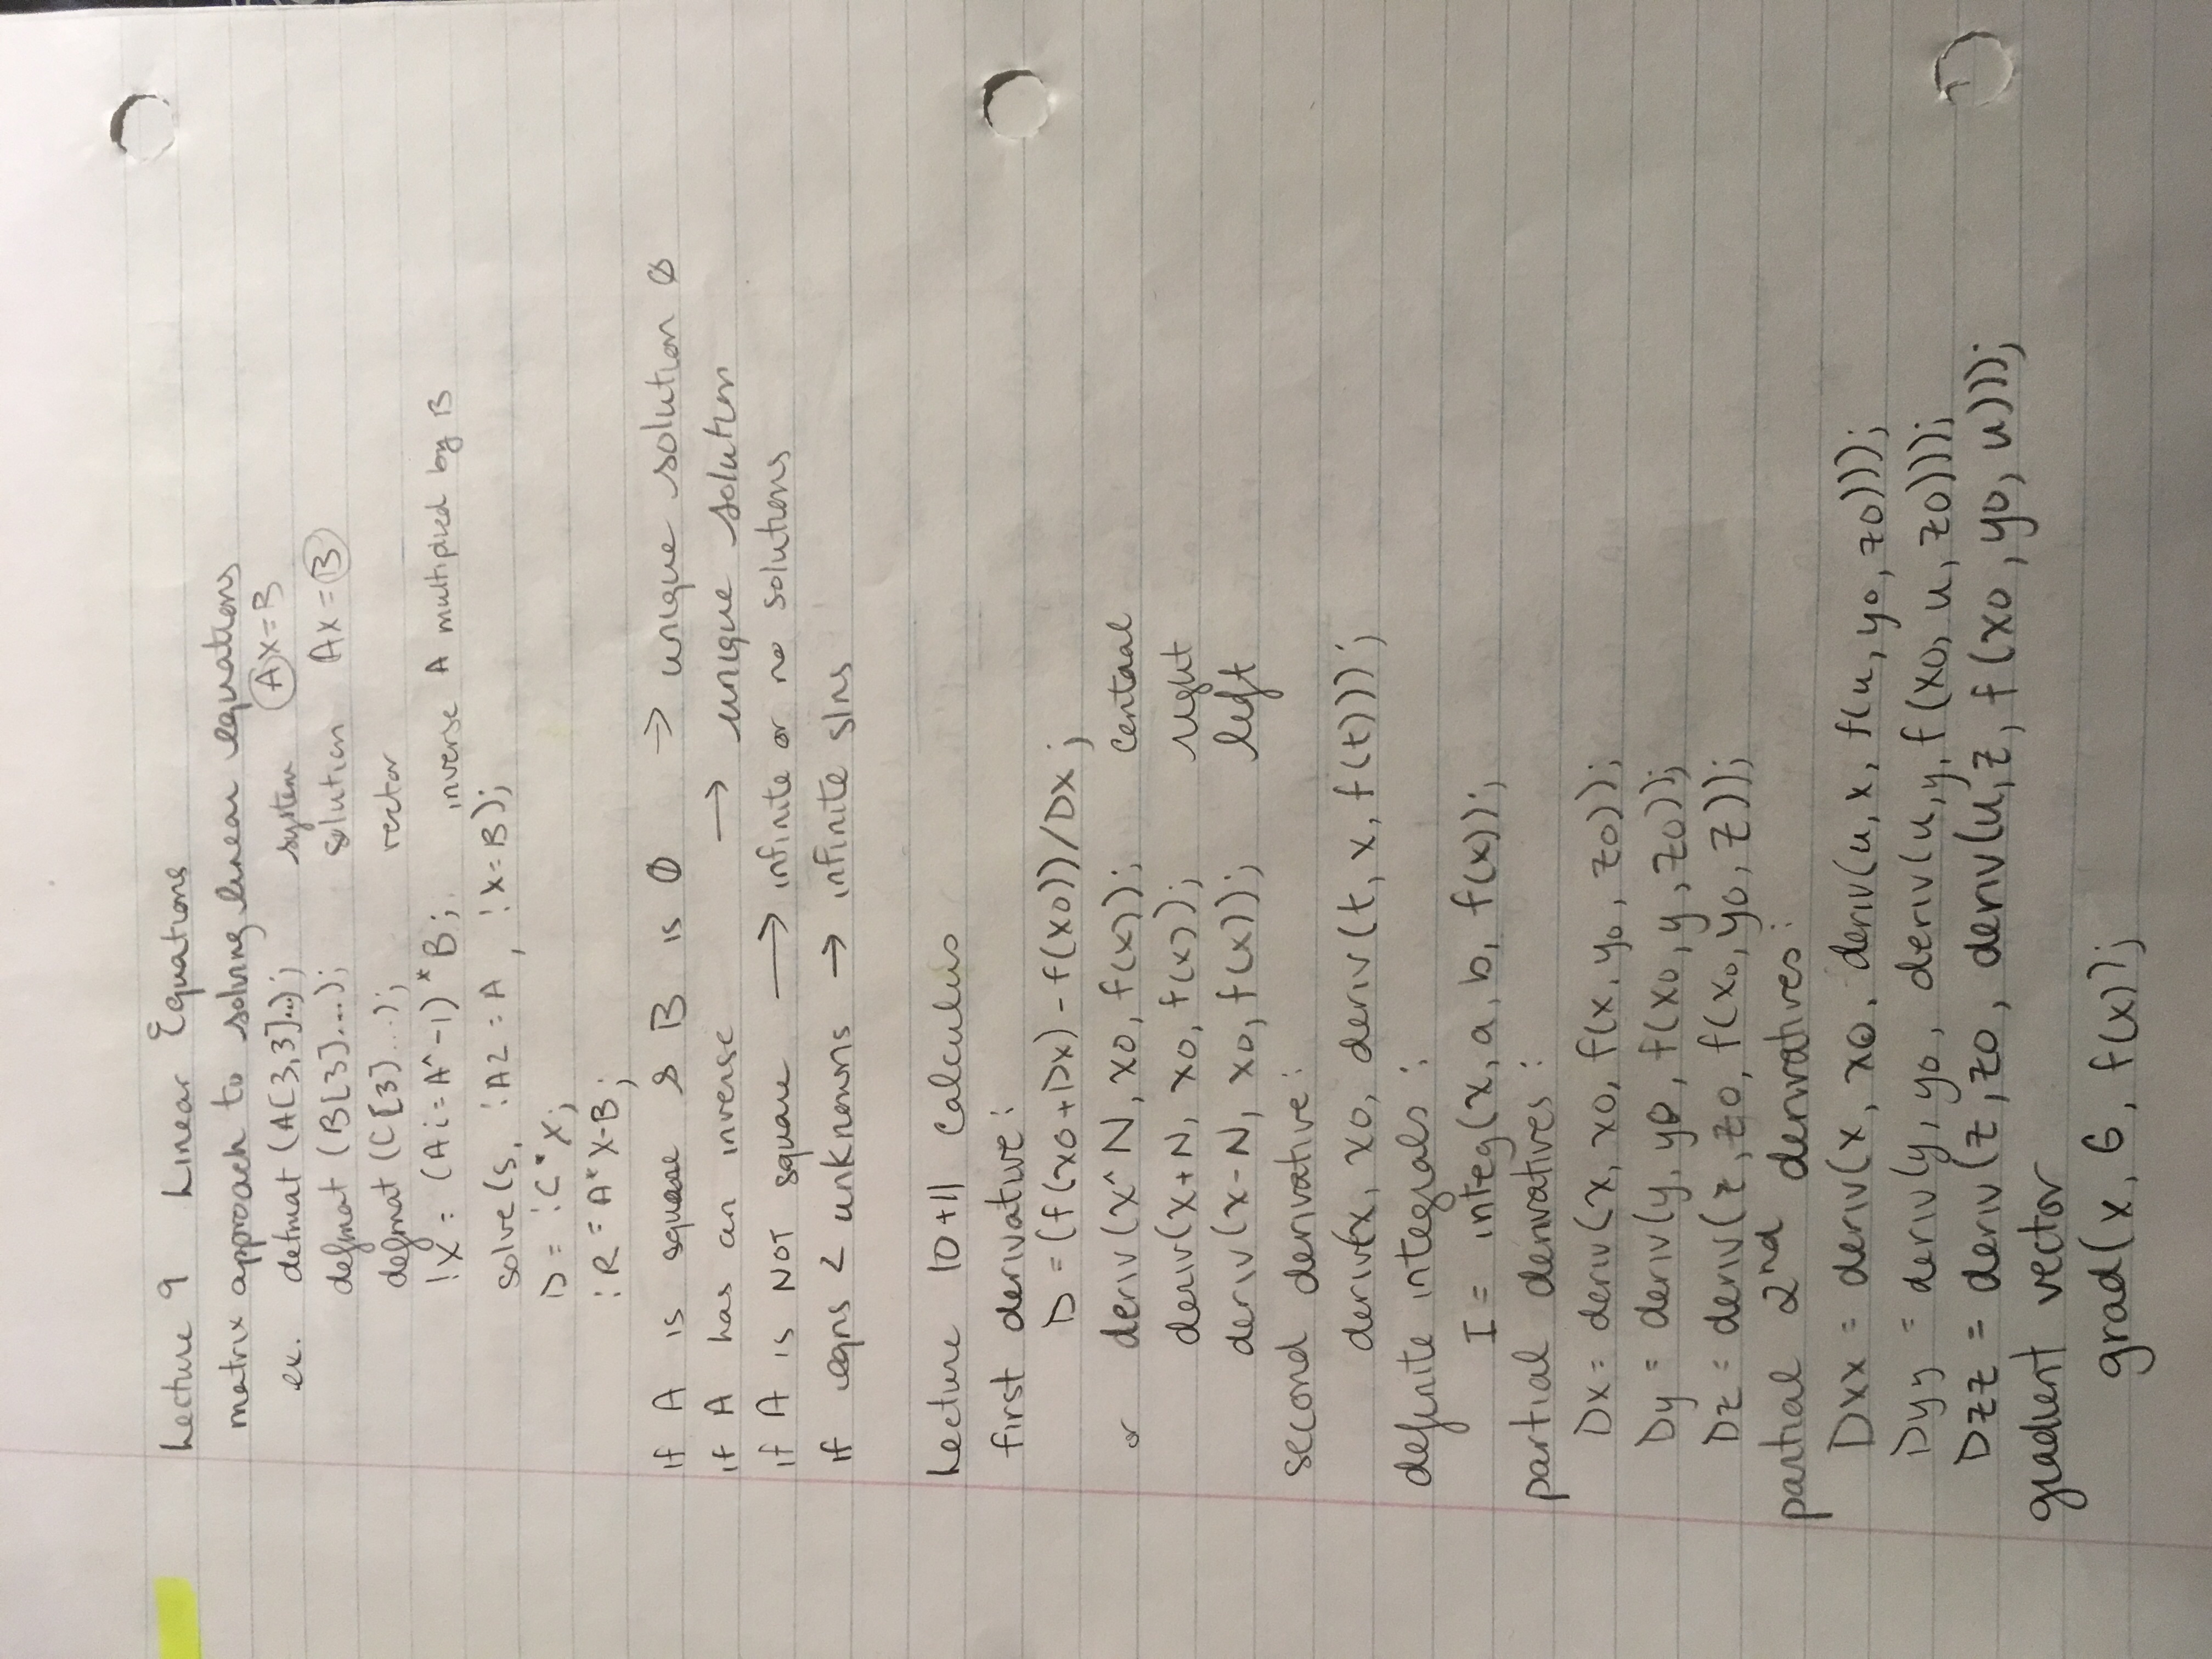 Lecture 9 Linear Equations
matrix approach to solving linear equations
ex. defmat (A[3,3]...); system Ax=B
defmat (B[3]....); solution Ax=B
defmat (C[3]...); vector
:X = (Ai=A^-1)*B; inverse A multiplied by B
solve(s, :A2=A, :x=B);
D = :C*X;
:R = A*X-B;
if A is square & B is 0 → unique solution 0
if A has an inverse → unique solution
if A is NOT square → infinite or no solutions
if eqns < unknowns → infinite slns
Lecture 10+11 Calculus
first derivative:
D = (f(x0+Dx)-f(x0))/Dx;
or deriv(x^N, x0, f(x)); central
deriv(x+N, x0, f(x)); right
deriv(x-N, x0, f(x)); left
second derivative:
deriv(x, x0, deriv(t, x, f(t)));
definite integrals:
I = integ(x, a, b, f(x));
partial derivatives:
Dx = deriv(x, x0, f(x, y0, z0));
Dy = deriv(y, y0, f(x0, y, z0));
Dz = deriv(z, z0, f(x0, y0, z));
partial 2nd derivatives:
Dxx = deriv(x, x0, deriv(u, x, f(u, y0, z0)));
Dyy = deriv(y, y0, deriv(u, y, f(x0, u, z0)));
Dzz = deriv(z, z0, deriv(u, z, f(x0, y0, u)));
gradient vector
grad(x, G, f(x));